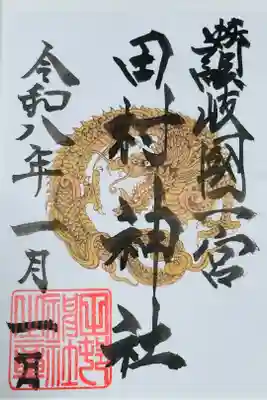 讃岐國一宮
田村神社
令和八年一月一日